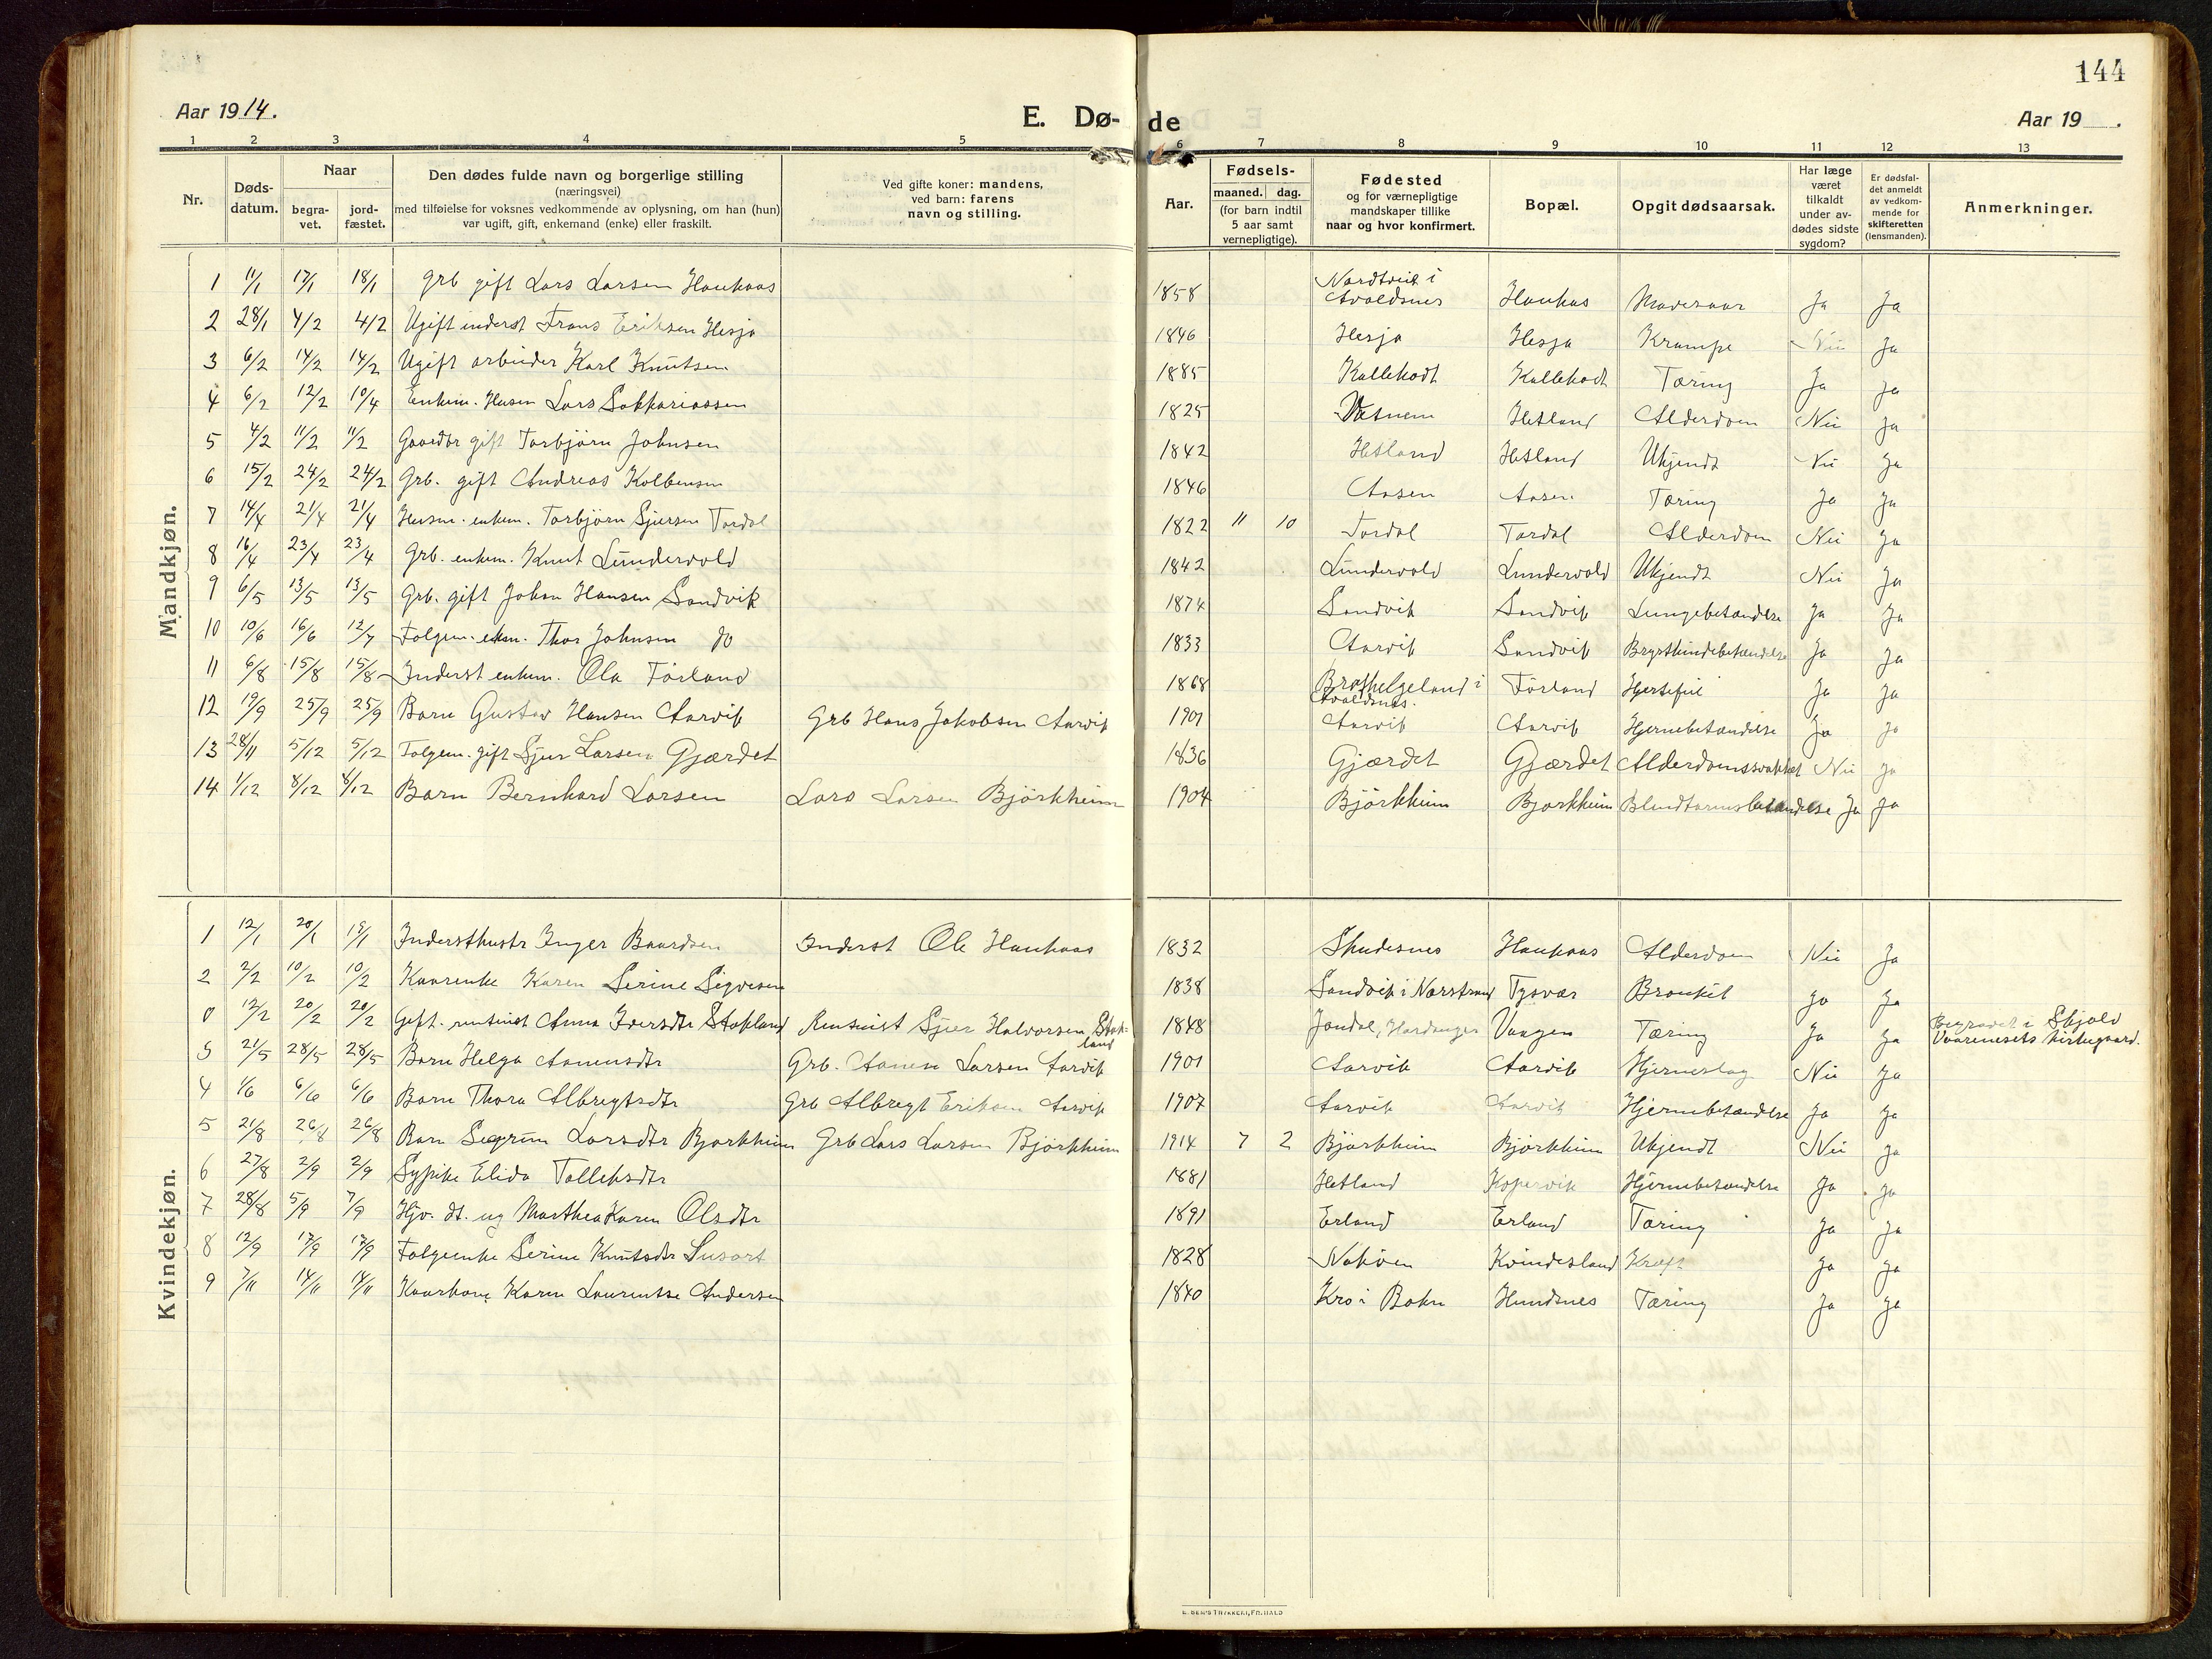 144
Aar 1914.
E. Dø-de
Aar 19 .
1 2 3 4 5 6 7 8 9 10 11 12 13
Nr.
Døds-datum.
Naar
begra-vet.
jord-fæstet.
Den dødes fulde navn og borgerlige stilling
(næringsvei)
med tilføielse for voksnes vedkommende av oplysning, om han (hun)
var ugift, gift, enkemand (enke) eller fraskilt.
Ved gifte koner: mandens,
ved barn: farens
navn og stilling.
Aar.
Fødsels-
maaned. dag.
(for barn indtil
5 aar samt
vernepligtige).
Fødested
og for værnepligtige
mandskaper tillike
naar og hvor konfirmert.
Bopæl.
Opgit dødsaarsak.
Har læge
været
tilkaldt
under av-
dødes sidste
sygdom?
Er dødsfal-
det anmeldt
av vedkom-
mende for
skifteretten
(lensmanden).
Anmerkninger.
Mandkjøn.
1 11/1 17/1 18/1 Grb gift Lars Larsen Haukaas 1858 Nordtveit i Avaldsnes Haukas Mavesaar Ja Ja
2 28/1 4/2 4/2 Ugift inderst Frans Eriksen Hesja 1846 Hesja Hesja Krampe Nei Ja
3 6/2 14/2 14/2 Ugift arbeider Karl Knutsen 1885 Kallekodt Kallekodt Tæring Ja Ja
4 6/2 12/2 10/4 Enkem. Husm Lars Sakkariassen 1825 Vatnem Hetland Alderdom Nei Ja
5 4/2 11/2 11/2 Gaardbr gift Torbjørn Johnsen 1842 Hetland Hetland Ukjendt Nei Ja
6 15/2 24/2 24/2 Grb. gift Andreas Kolbensen 1846 Aasen Aasen Tæring Ja Ja
7 14/4 21/4 21/4 Husm. enkem. Torbjørn Sjursen Tordal 1822 11 10 Tordal Tordal Alderdom Nei Ja
8 16/4 23/4 23/4 Grb. enkem. Knut Lundervold 1842 Lundervold Lundervold Ukjendt Nei Ja
9 6/5 13/5 13/5 Grb. gift Johan Hansen Sandvik 1874 Sandvik Sandvik Lungebetændelse Ja Ja
10 10/6 16/6 12/7 Folgem. ekm. Thor Johnsen do 1833 Aarvik Sandvik Brysthindebetændelse Ja Ja
11 6/8 15/8 15/8 Inderst enkem. Ola Førland 1868 Brathelgeland i Avaldsnes. Førland Hjertefeil Ja Ja
12 19/9 25/9 25/9 Barn Gustav Hansen Aarvik Grb Hans Jakobsen Aarvik 1901 Aarvik Aarvik Hjernebetændelse Ja Ja
13 28/11 5/12 5/12 Folgem. gift Sjur Larsen Gjærdet 1836 Gjærdet Gjærdet Alderdomssvakhet Nei Ja
14 1/12 8/12 8/12 Barn Bernhard Larsen Lars Larsen Björkheim 1904 Björkheim Bjorkheim Blindtarmsbetændelse Ja Ja
Kvindekjøn.
1 12/1 20/1 19/1 Indersthustr Inger Baardsen Inderst Ole Haukaas 1832 Skudesnes Haukaas Alderdom Nei Ja
2 2/2 10/2 10/2 Kaarenke Karen Serine Sigvesen 1838 Sandvik i Nærstrand Tysvær Bronkit Ja Ja
0 12/2 20/2 20/2 Gift. rentenist Anna Iversdtr Stokland Rentenist Sjur Halvorsen Stokland 1848 Jondal, Hardanger Vaagen Tæring Ja Ja Begravet i Skjold Vaarenesets kirkegaard.
3 21/5 28/5 28/5 Barn Helga Aanensdtr Grb. Aanen Larsen Aarvik 1901 Aarvik Aarvik Hjerneslag Nei Ja
4 1/6 6/6 6/6 Barn Thora Albregtsdtr Grb Albregt Eriksen Aarvik 1907 Aarvik Aarvik Hjernebetændelse Ja Ja
5 21/8 26/8 26/8 Barn Segrun Larsdtr Bjorkheim Grb Lars Larsen Björkheim 1914 7 2 Björkheim Björkheim Ukjendt Nei Ja
6 27/8 2/9 2/9 Sypike Elida Tolleksdtr 1881 Hetland Kopervik Hjernebetændelse Ja Ja
7 28/8 5/9 7/9 Hjv. dt. ug Marthea Karen Olsdtr 1891 Erland Erland Tæring Ja Ja
8 12/9 17/9 17/9 Folgeenke Serine Knutsdtr Susort 1828 Naköen Kvindesland Kræft Ja Ja
9 7/11 14/11 14/11 Kaarkone Karen Laurentse Andersen 1840 Kro i Bokn Hundsnes Tæring Ja Ja